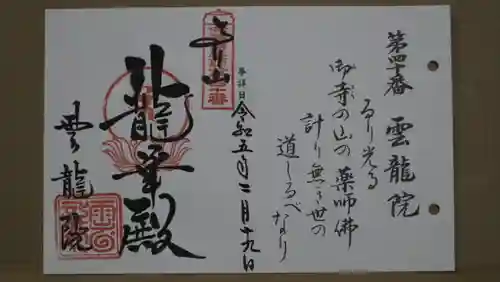 第四十番 雲龍院
るり光る
御寺の山の 薬師佛
計り無き世の
道しるべなり
参拝日
令和五年二月十九日
龍華殿
雲龍院